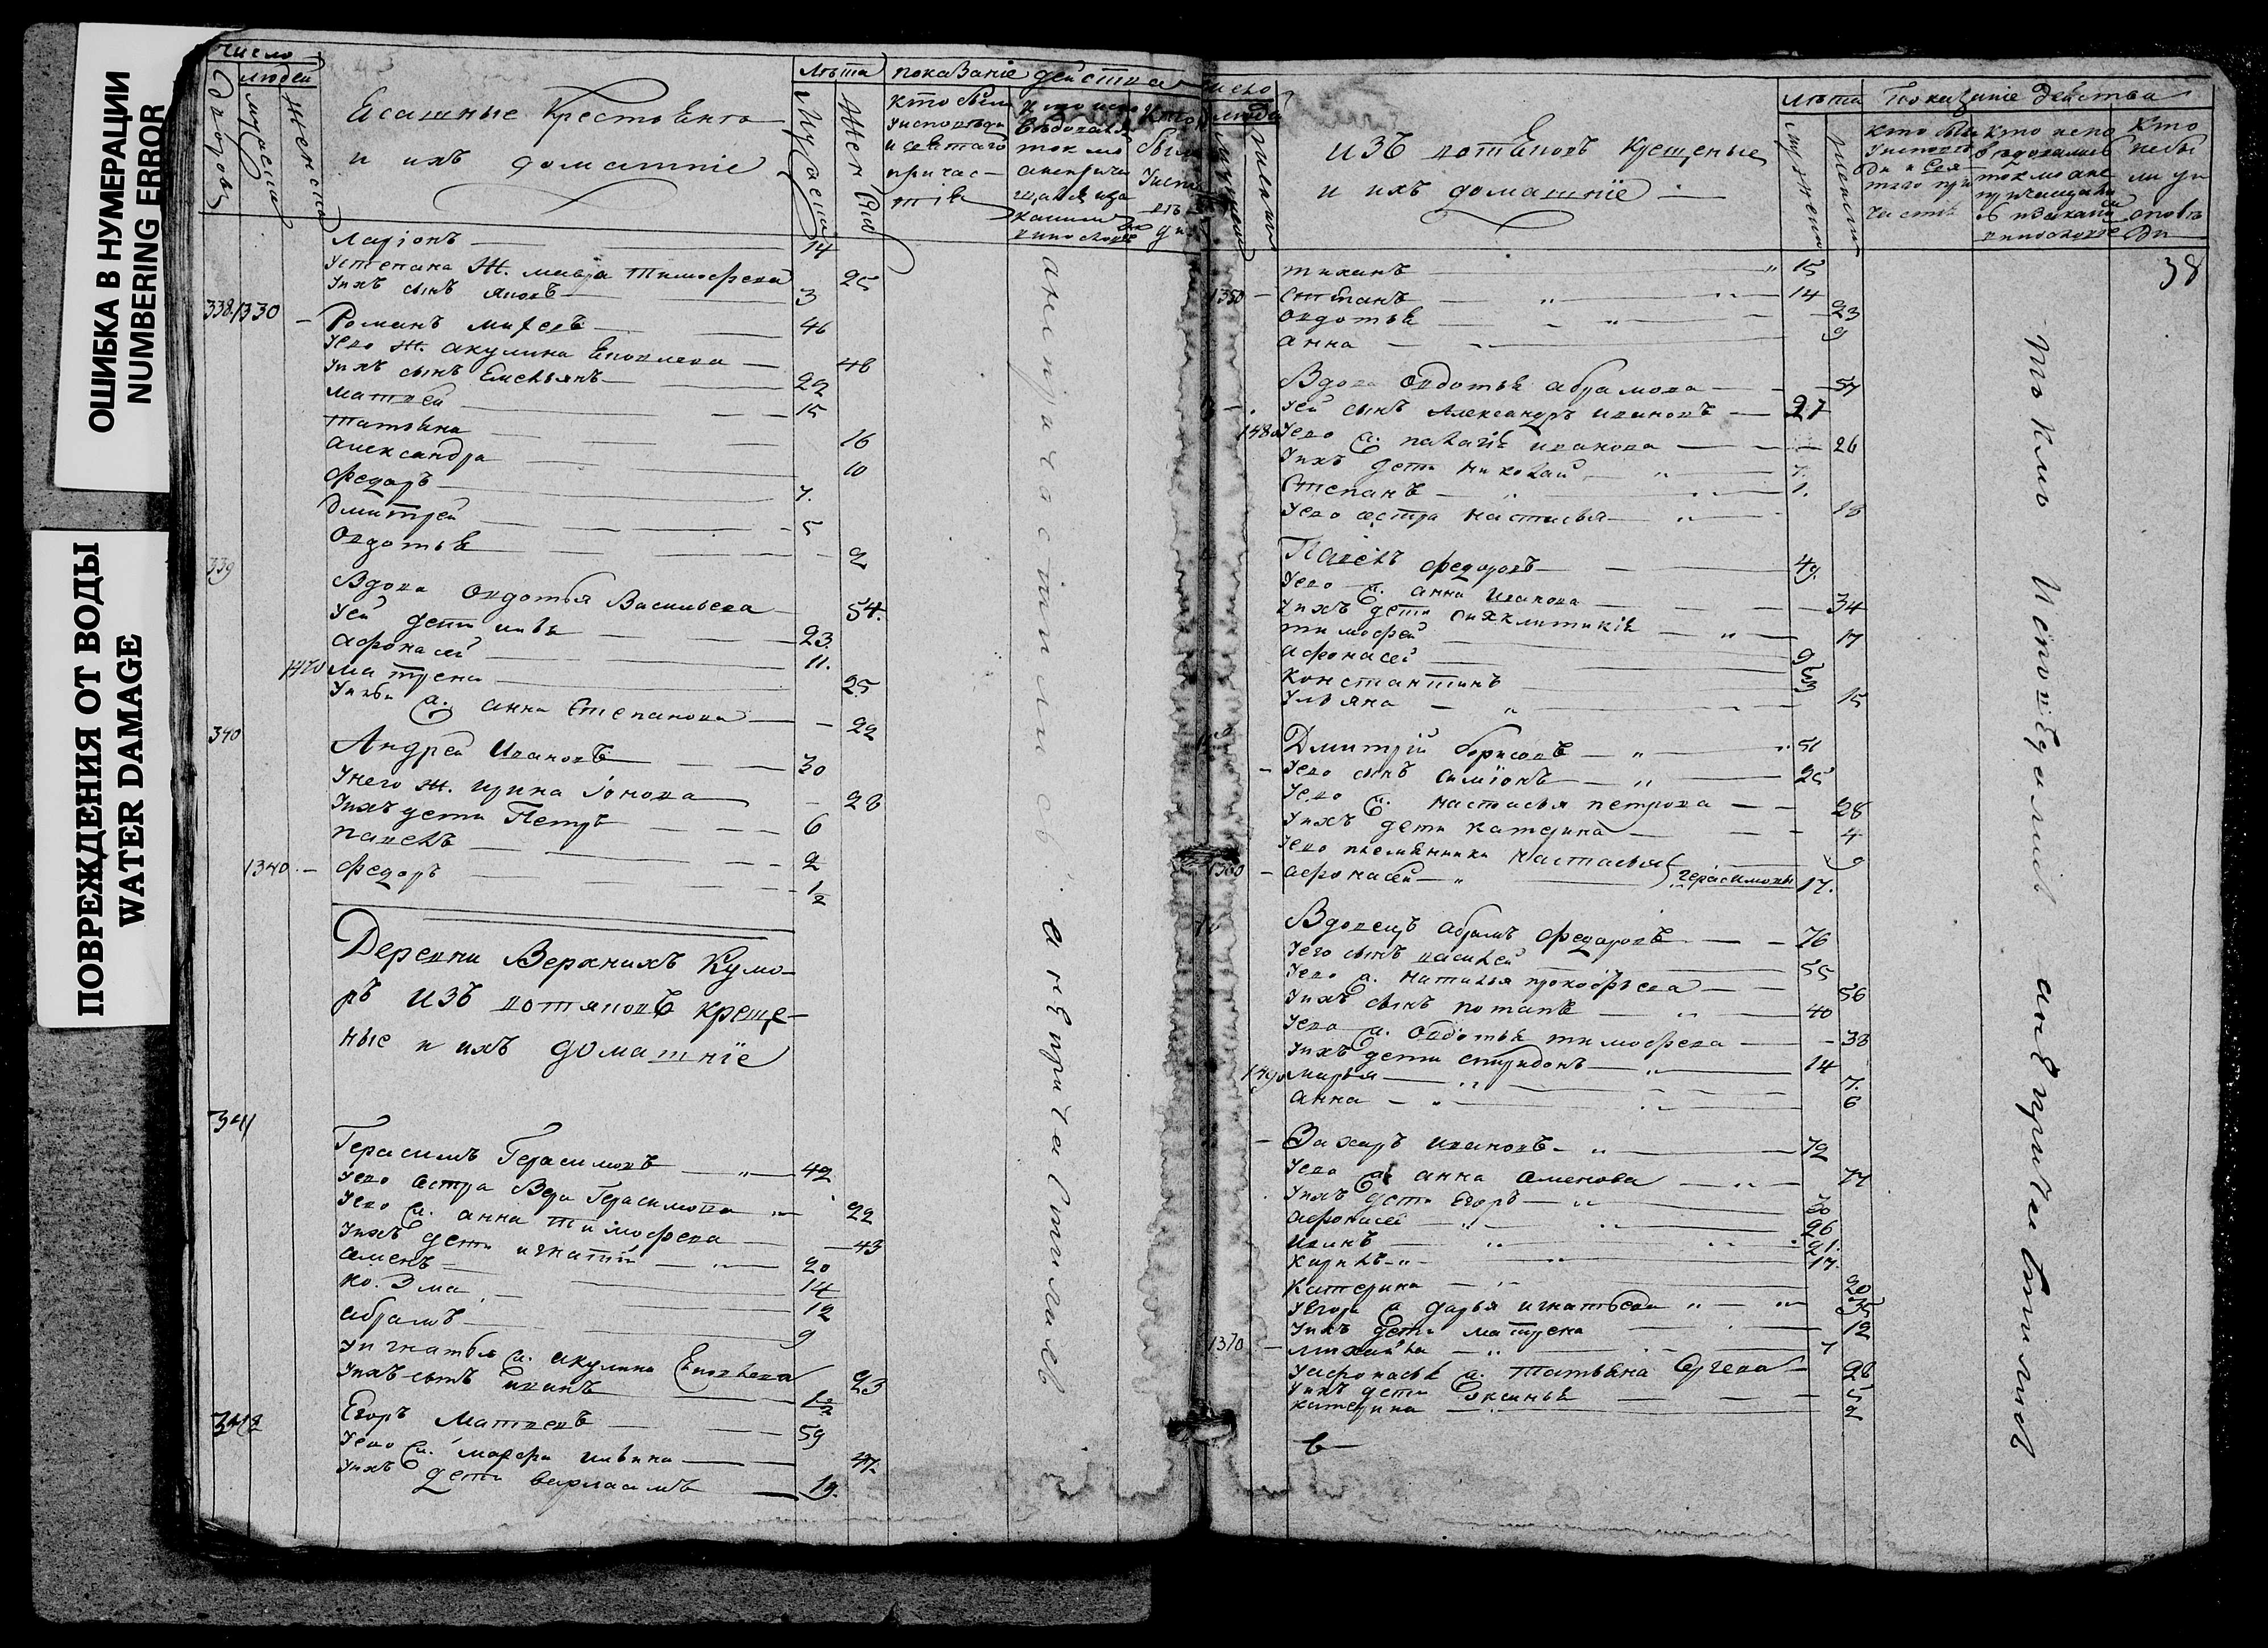 ОШИБКА В НУМЕРАЦИИ
NUMBERING ERROR
ПОВРЕЖДЕНИЯ ОТ ВОДЫ
WATER DAMAGE
число
людей
дворовъ
мужеска
женска
Есашные Крестьяня
и ихъ домашніе
лѣта
Мужеска
Женска
показаніе действа
кто были
уисповѣди
и святаго
причас-
тія
Ларіонъ 14
Устепана Ж. мавра тимофеева 25
Уихъ сынъ яковъ 3
338 1330 Романъ михеевъ 46
Уево Ж. акулина Яковлева 46
Уихъ сынъ Емельянъ 22
матвей 15
татьяна 16
александра 10
Федоръ 7.
Дмитрей 5
Овдотья 2
339 Вдова Овдотья Васильева 54.
Уей дети илья 23.
афонасей 11.
1470 матрена 25
Уильи а. анна Степанова 22
340 Андрей Ивановъ 30
Унего ж. ирина іонова 28
Уихъ дети Петръ 6
павелъ 2
1340 Федоръ 1/2
Деревни Верхнихъ Кумо-
ръ изъ вотяковъ креще-
ные и ихъ домашніе
341 Герасимъ Герасимовъ 42
Уево сестра Вера Герасимова 22
Уево а. анна тимофеева 43
Уихъ дети игнатій 20
Семенъ 14
Козма 12
абрамъ 9
Уигнатья а. акулина Яковлева 23
Уихъ сынъ иванъ 1/2
342 Егоръ Матвеевъ 59
Уево а. марфа ильина 47.
Уихъ дети варлаамъ 19.
анепричастились анепричастились
число
людей
мужеска
женска
изъ вотяковъ крещеные
и ихъ домашніе
лѣта
мужеска
женска
Показаніе действа
кто бы
Кто
небы
ли уи
споведи
38
тиханъ 15
1350 степанъ 14
овдотья 23
анна 9
Вдова Овдотья абрамова 57
Уей сынъ Александръ ивановъ 27
1480 Уево а. палагія иванова 26
Уихъ дети николай 7.
Степанъ 1.
Уево сестра настасья 18
Павелъ федоровъ 49.
Уево а. анна иванова 34
Уихъ дети синклитикія 17
тимофей 9
афонасей
Константинъ 3
Ульяна 15
Дмитрій борисовъ 51
Уево сынъ симіонъ 25
Уево а. настасья петрова 28
Уихъ дети катерина 4
Уево племянники настасья 9
1360 афонасей герасимовы 17.
Вдовецъ абрамъ федоровъ 76
Уего сынъ василей 55
Уево а. наталья прокофьева 56
Уихъ сынъ потапъ 40
Уево а. Овдотья тимофеева 38
Уихъ дети спиридонъ 14
1490 марья 7.
анна 6
Захаръ ивановъ 72
Уево а. анна семенова 71
Уихъ дети егоръ 30
афонасей 26
иванъ 21.
карпъ 17.
Катерина 20
Уегора а дарья игнатьева 35
Уихъ дети матрена 12
1370 михайла 7
Уафонасья а. татьяна Сергеева 26
Уихъ дети Оксинья 5
катерина 2
токмо Исповедались анепричастились